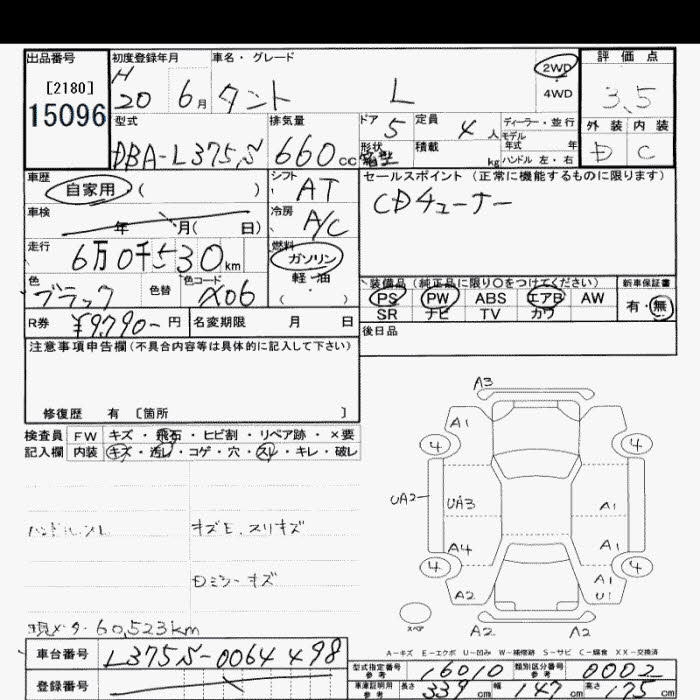 出品番号 初度登録年月 車名・グレード 評価点
[2180] H 2WD
15096 20 6月 タント L 4WD 3.5
型式 排気量 ドア 5 定員 4人 ディーラー・並行 外装 内装
DBA-L375S 660cc 形状 箱型 積載 kg モデル年式 年 D C
ハンドル 左・右
車歴 自家用 ( ) シフト AT セールスポイント (正常に機能するものに限ります)
車検 年 月( 日) 冷房 A/C CDチューナー
走行 6万0千530km 燃料 ガソリン
軽・油
( )
色 ブラック 色替 色コード X06 装備品 (純正品に限り○をつけてください) 新車保証書
PS PW ABS エアB AW 有・無
SR ナビ TV カワ
R券 ¥9790-円 名変期限 月 日 後日品
注意事項申告欄(不具合内容等は具体的に記入して下さい)
修復歴 有 [箇所 ]
検査員 FW キズ・飛石・ヒビ割・リペア跡・×要
記入欄 内装 キズ・汚レ・コゲ・穴・スレ・キレ・破レ
A3
A1
4 4
UA2 UA3 A1
A4 A1
4 4
A1
A2 U1
スペア A2 A2
ハンドルスレ キズE、スリキズ
Dミラーキズ
現メータ 60,523km
A-キズ E-エクボ U-凹み W-補修跡 S-サビ C-腐食 XX-交換済
車台番号 L375S-0064498
型式指定番号 参考 16010 類別区分番号 参考 0002
登録番号 車庫証明用 参考 長さ 339cm 幅 147cm 高さ 75cm